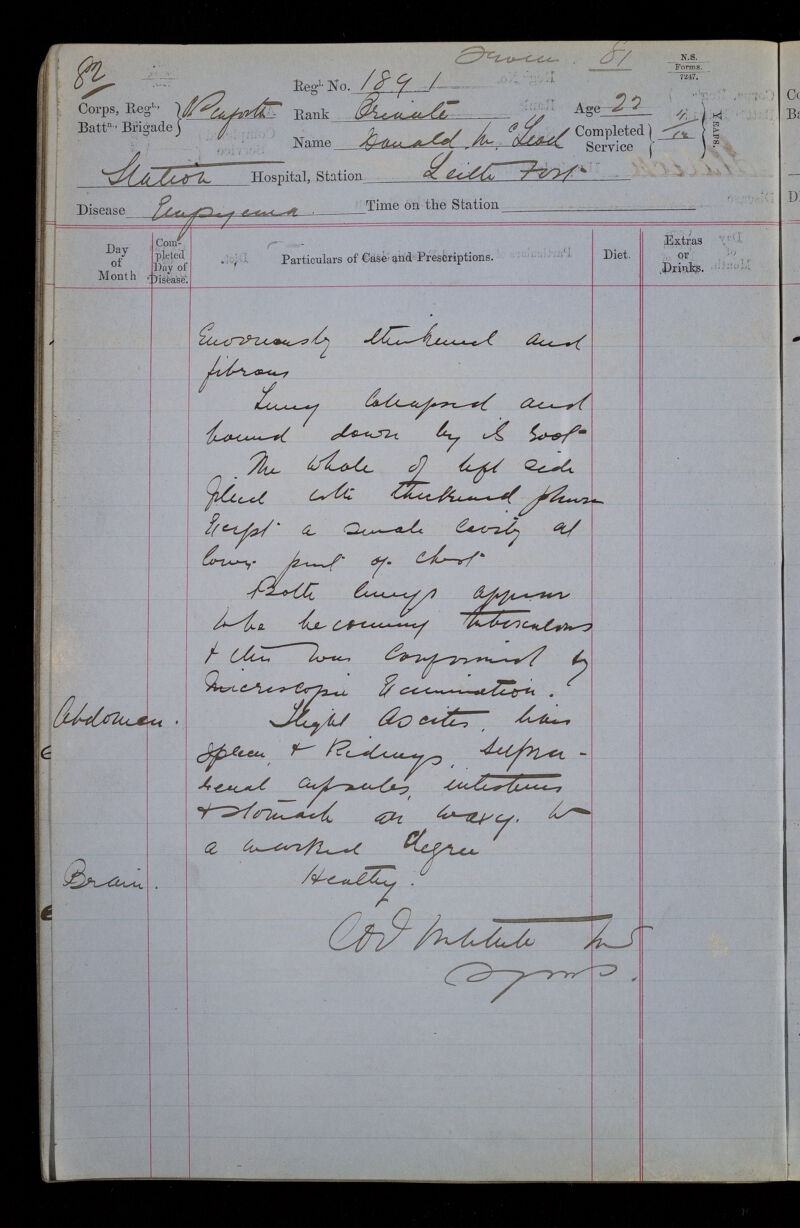 82
From 81
N.S.
Forms.
7247.
Regl. No. 1891
Corps, Regt., Battn. Brigade
Seaforth
Rank Private
Age 22
Name Donald McLeod
Completed Service
YEARS.
Station Hospital, Station Leith Fort
Disease Empyema. Time on the Station
Day of Month
Completed Day of Disease.
Particulars of Case and Prescriptions.
Diet.
Extras or Drinks.
Enormously thickened and
fibrous
Lung collapsed and
bound down by its root
The whole of left side
filled with thickened pleura
Except a small cavity at
lower part of chest
Both lungs appear
to be becoming tuberculous
& this was confirmed by
Microscopic Examination.
Abdomen. Slight Ascites, liver
spleen, & Kidneys, supra-
renal capsules, intestines
& stomach are waxy to
a marked degree
Brain. Healthy.